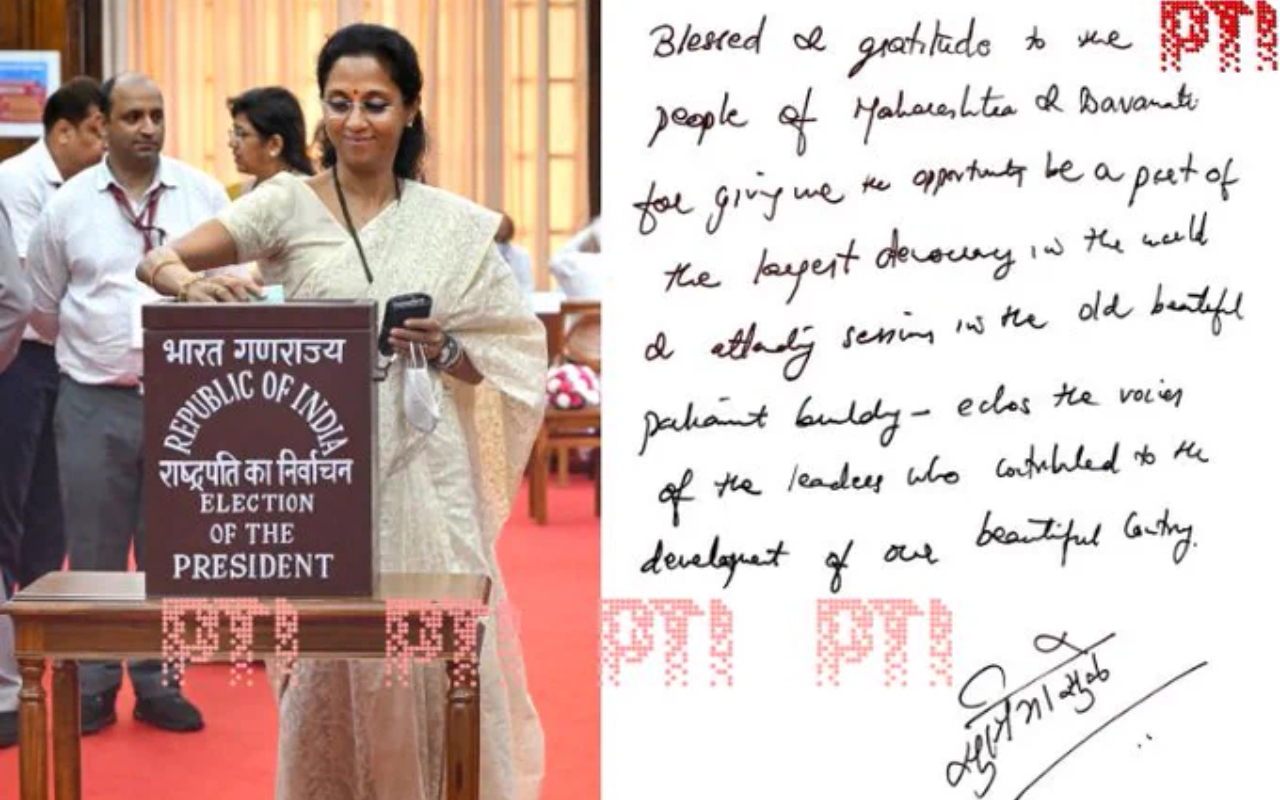 भारत गणराज्य
REPUBLIC OF INDIA
राष्ट्रपति का निर्वाचन
ELECTION
OF THE
PRESIDENT
PTI
Blessed & gratitude to the
people of Maharashtra & Baramati
for giving me the opportunity be a part of
the largest democracy in the world
& attending session in the old beautiful
parliament building – echos the voices
of the leaders who contributed to the
development of our beautiful Country.
PTI PTI PTI PTI